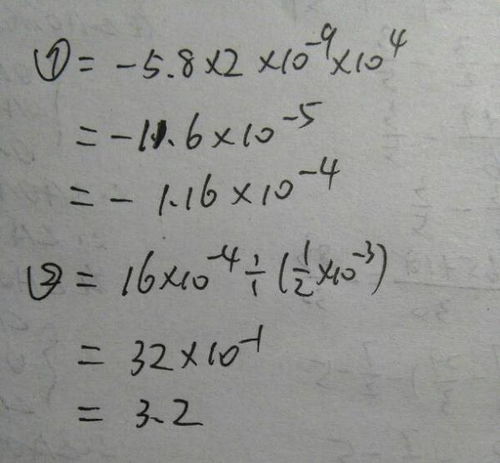 ① = -5.8×2×10⁻⁹×10⁴
= -11.6×10⁻⁵
= - 1.16×10⁻⁴
② = 16×10⁻⁴÷(1/2×10⁻³)
= 32×10⁻¹
= 3.2